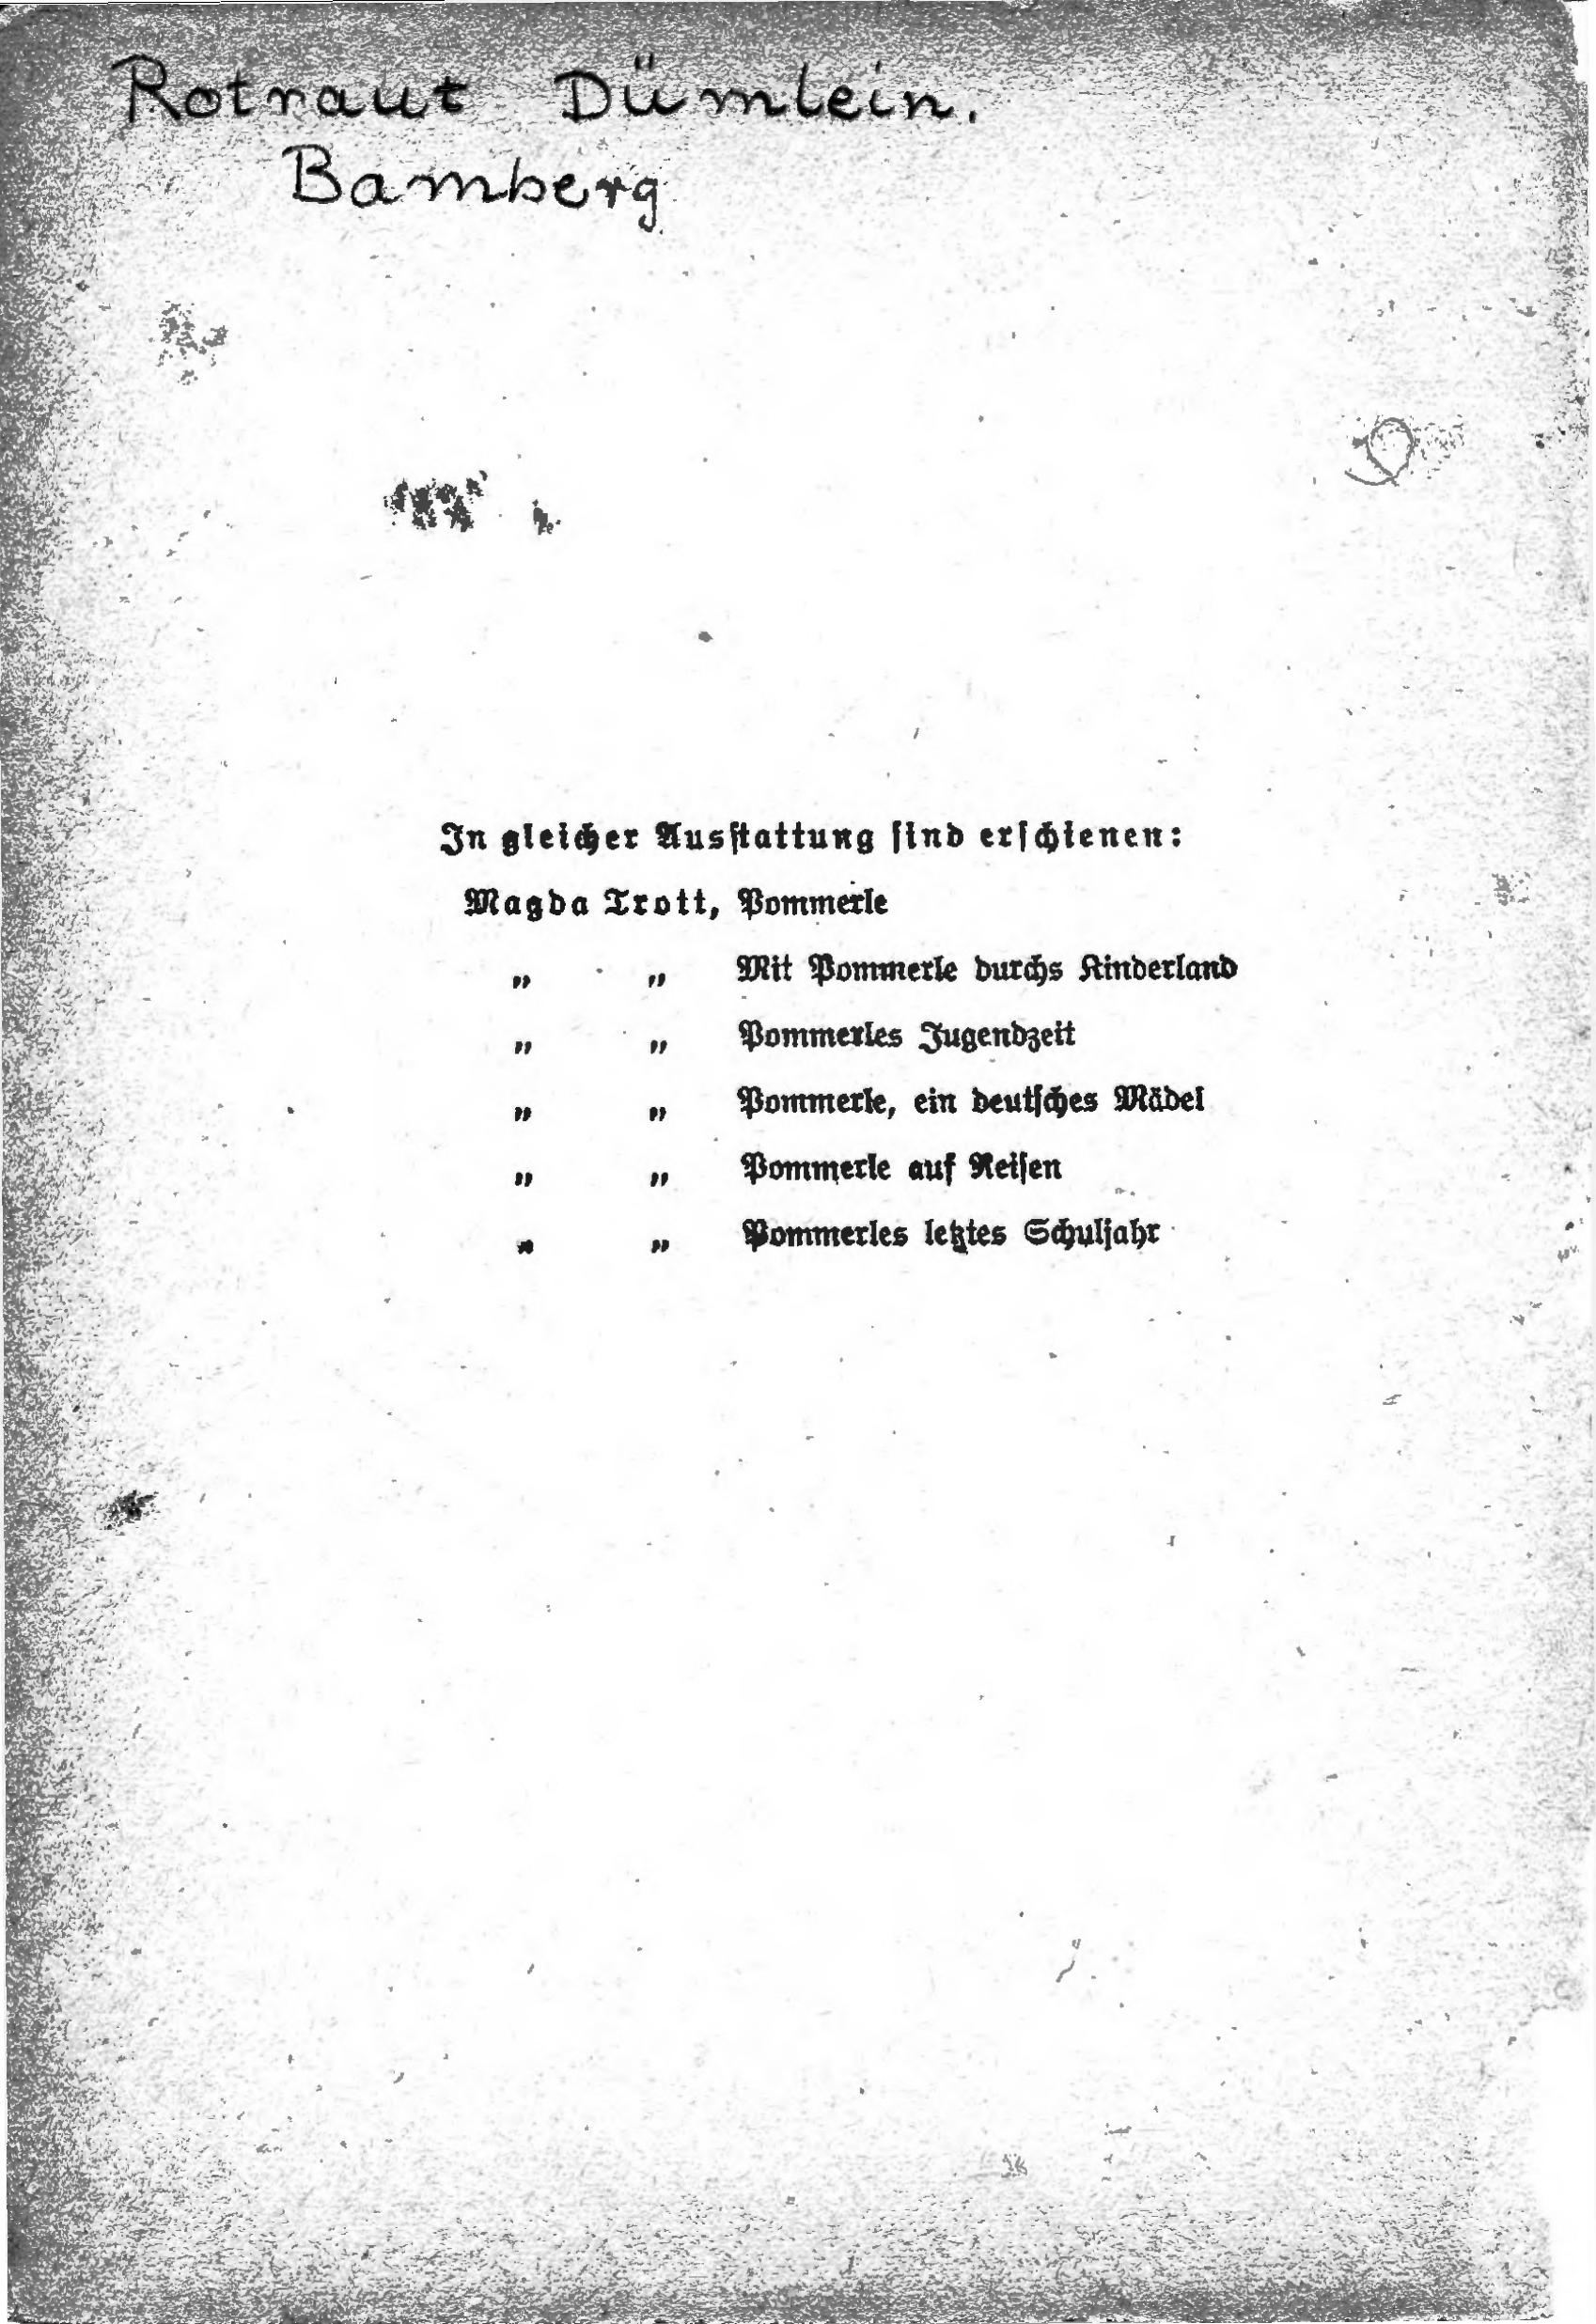 Rotraut Dümlein.
Bamberg
In gleicher Ausstattung sind erschienen:
Magda Trott, Pommerle
„ „ Mit Pommerle durchs Kinderland
„ „ Pommerles Jugendzeit
„ „ Pommerle, ein deutsches Mädel
„ „ Pommerle auf Reisen
„ „ Pommerles letztes Schuljahr